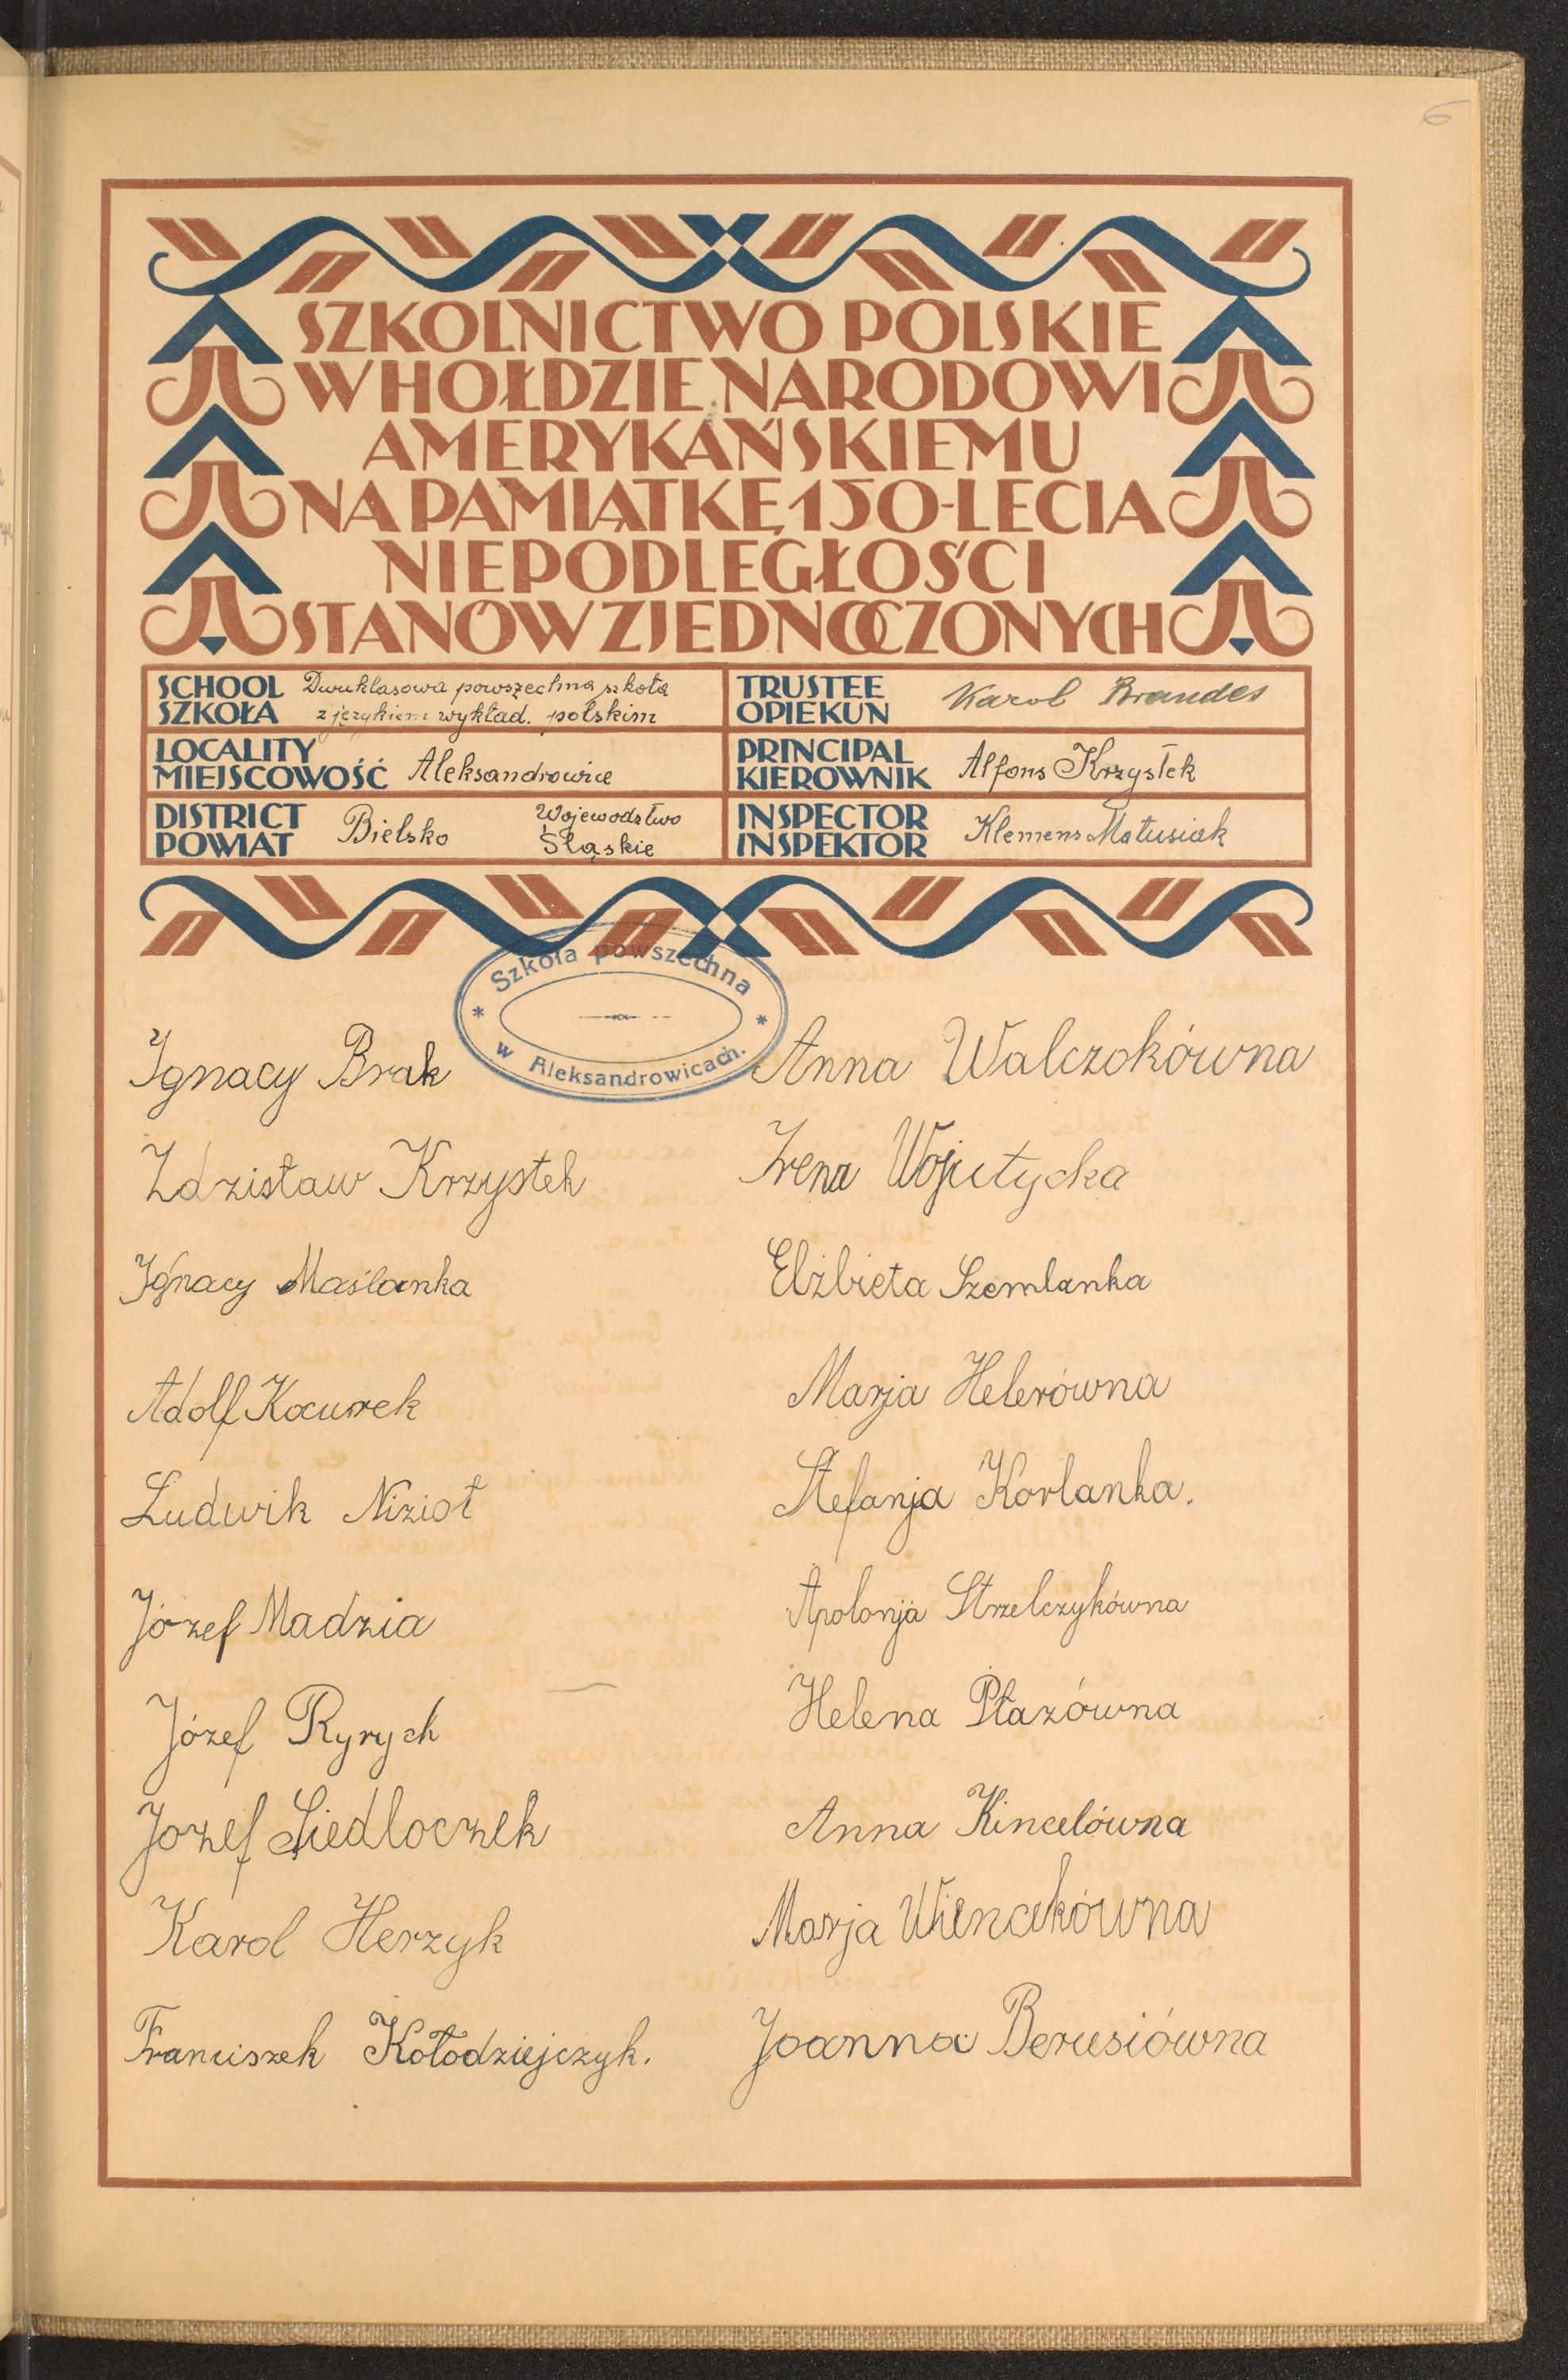 6
SZKOLNICTWO POLSKIE
W HOŁDZIE NARODOWI
AMERYKAŃSKIEMU
NA PAMIĄTKĘ 150-LECIA
NIEPODLEGŁOŚCI
STANÓW ZJEDNOCZONYCH
SCHOOL SZKOŁA Dwuklasowa powszechna szkoła
z językiem wykład. polskim
TRUSTEE OPIEKUN Karol Brandes
LOCALITY MIEJSCOWOŚĆ Aleksandrowice
PRINCIPAL KIEROWNIK Alfons Krzystek
DISTRICT POWIAT Bielsko Województwo
Śląskie
INSPECTOR INSPEKTOR Klemens Matusiak
Szkoła powszechna
w Aleksandrowicach.
Ignacy Brak
Zdzisław Krzystek
Ignacy Maślanka
Adolf Kocurek
Ludwik Nizioł
Józef Madzia
Józef Ryrych
Jozef Siedloczek
Karol Herzyk
Franciszek Kołodziejczyk.
Anna Walczokówna
Irena Wojutycka
Elżbieta Szemlanka
Marja Helerówna
Stefanja Korlanka.
Apolonja Strzelczykówna
Helena Płazówna
Anna Kincelówna
Marja Wiencekówna
Joanna Berusiówna